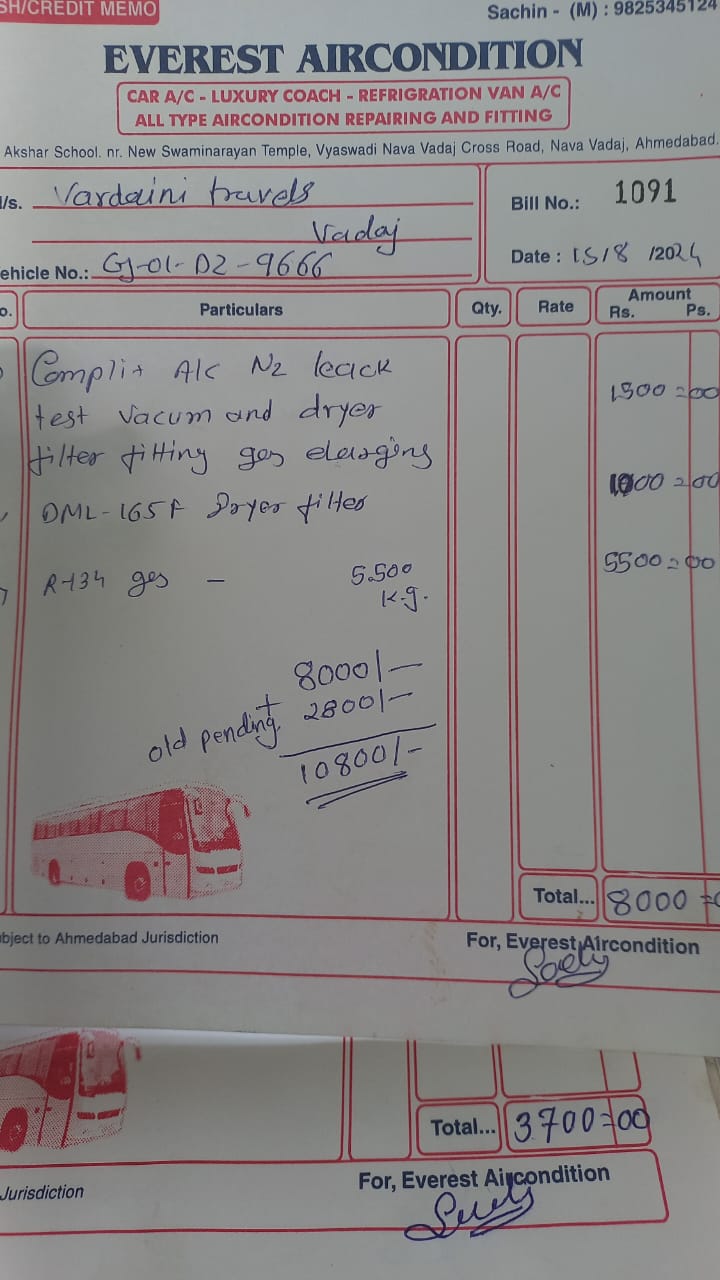 SH/CREDIT MEMO
Sachin - (M) : 9825345124
EVEREST AIRCONDITION
CAR A/C - LUXURY COACH - REFRIGRATION VAN A/C
ALL TYPE AIRCONDITION REPAIRING AND FITTING
Akshar School. nr. New Swaminarayan Temple, Vyaswadi Nava Vadaj Cross Road, Nava Vadaj, Ahmedabad.
/s. Vardaini travels
Vadaj
Bill No.: 1091
ehicle No.: GJ-01-DZ-9666
Date : 15/8 /2024
o. Particulars Qty. Rate Amount
Rs. Ps.
Complit A/C N2 leack
1500=00
test vacum and dryer
filter fitting ges
1000=00
DML-165F Dryer filter
R-134 ges - 5.500 5500=00
K.g.
8000/-
old pending + 2800/-
10800/-
Total... 8000=0
bject to Ahmedabad Jurisdiction
For, Everest Aircondition
Total... 3700=00
Jurisdiction
For, Everest Aircondition